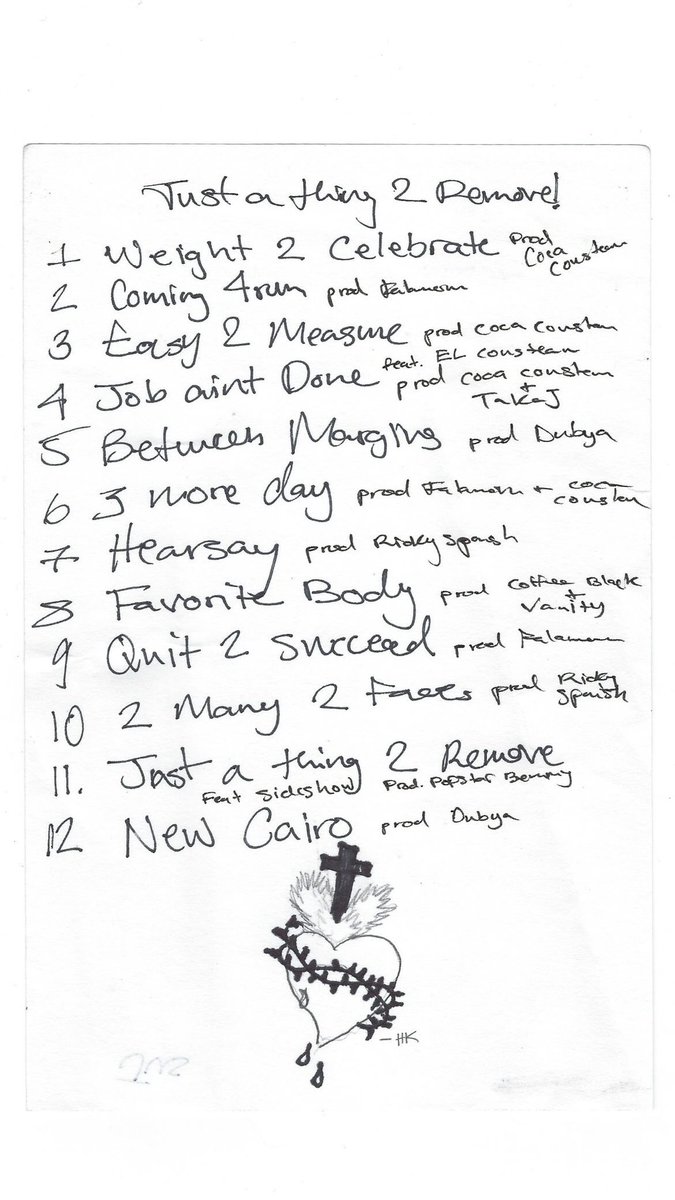 Just a thing 2 Remove!
1 Weight 2 Celebrate prod Coca Coustean
2 Coming 4rum prod
3 Easy 2 Measure prod coca Coustean
4 Job aint Done feat. EL Coustean prod coca coustean + TaKaJ
5 Between Margins prod Dubya
6 3 more day prod + coca coustean
7 Hearsay prod Ricky Spanish
8 Favorite Body prod Coffee Black + Vanity
9 Quit 2 Succeed prod
10 2 Many 2 Faces prod Ricky Spanish
11. Just a thing 2 Remove
Feat Sideshow Prod. Popstar Benny
12 New Cairo prod Dubya
- HK